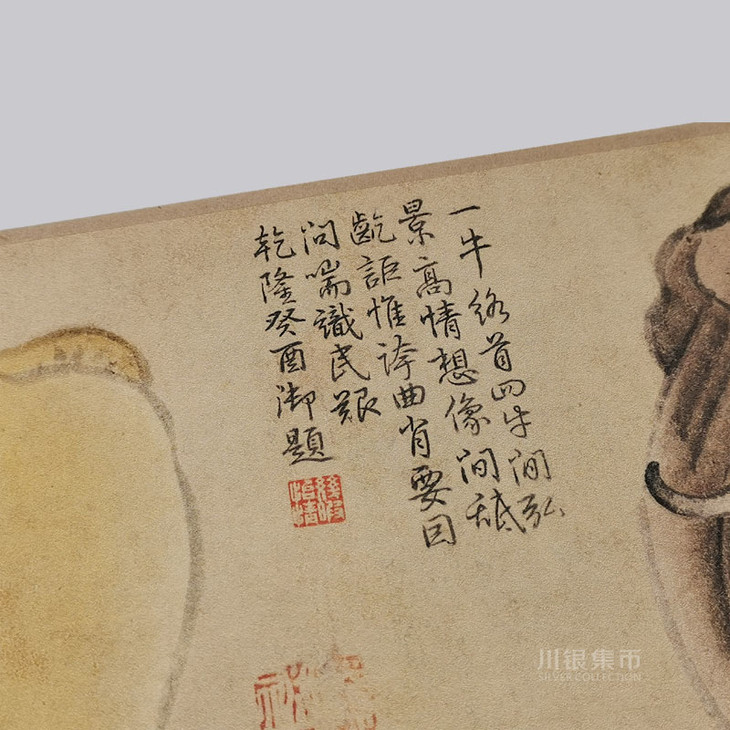 一牛絡首四牛閒弘
景高情想像間舐
齕詎惟誇曲肖要因
問喘識民艱
乾隆癸酉御題
幾暇怡情
川银集币
SILVER COLLECTION